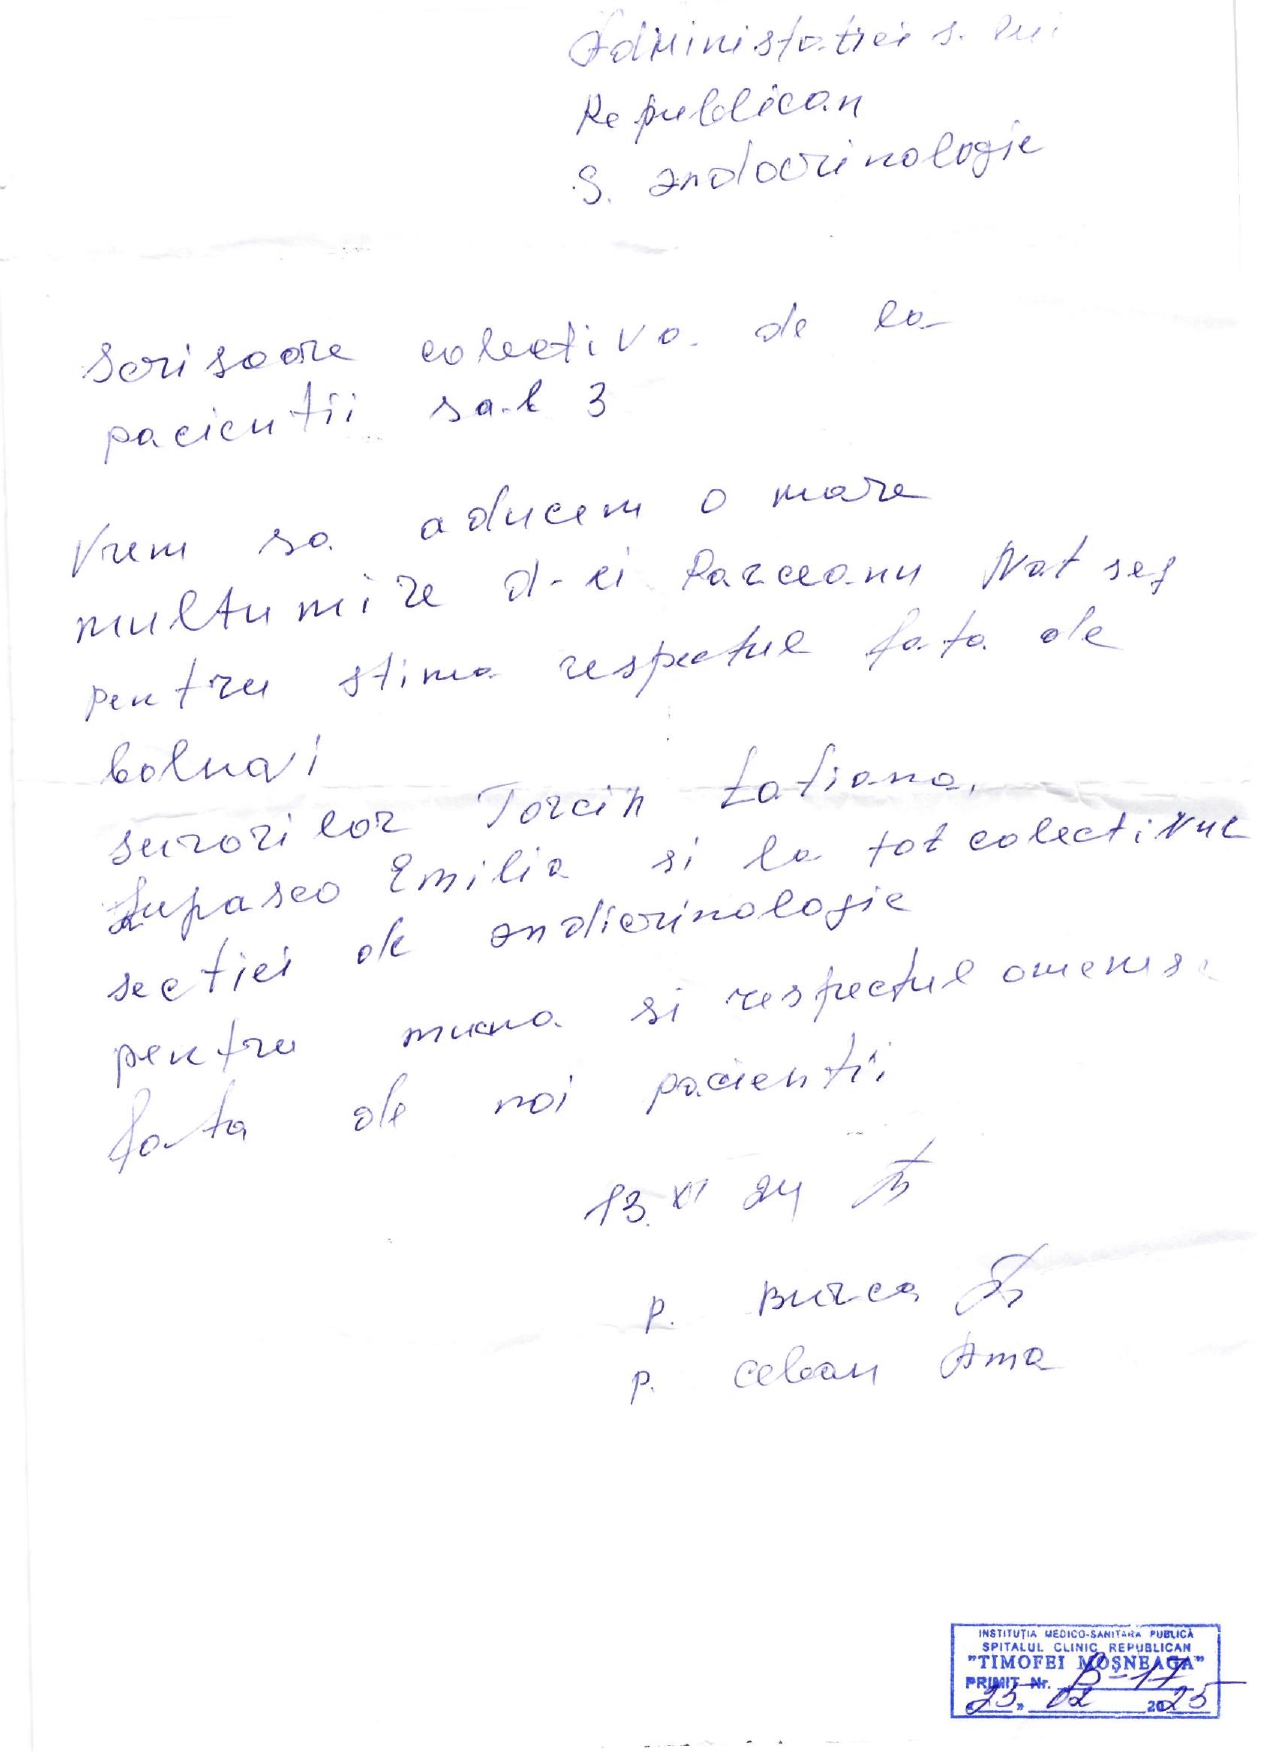 Administatiei s. lui
Republican
S. andocrinologie
Scrisoare colectiva de la
pacientii sal 3
Vrem sa aducem o mare
multumire d-ei Parceanu Nat sef
pentru stima respectul fata de
bolnavi
surorilor Torcin Tatiana,
Lupasco Emilia si la tot colectivul
sectiei de andicrinologie
pentru munca si respectul omenesc
fata de noi pacientii
13. XI 24
p. Burca
p. Ceban Ana
INSTITUȚIA MEDICO-SANITARĂ PUBLICĂ
SPITALUL CLINIC REPUBLICAN
"TIMOFEI MOȘNEAGA"
PRIMIT Nr. B-17
"25" 02 2025